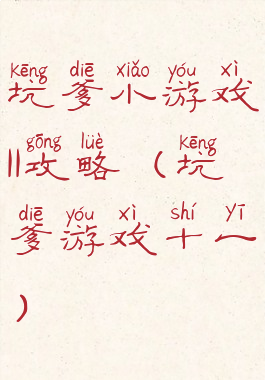 kēng diē xiǎo yóu xì
坑爹小游戏
gōng lüè kēng
||攻略（坑
diē yóu xì shí yī
爹游戏十一
）